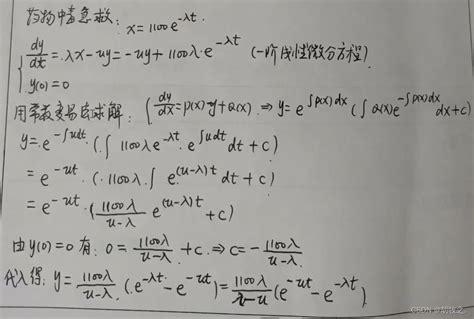 药物中毒急救: x=1100e^{-λt}.
{ dy/dt = λx-uy = -uy+1100λ·e^{-λt} (一阶线性微分方程)
y(0)=0
用常数变易法求解: ( dy/dx=p(x)·y+Q(x). ⇒ y=e^{∫p(x)dx}(∫Q(x)e^{-∫p(x)dx}dx+c)
y=e^{-∫udt}·(∫1100λe^{-λt}·e^{∫udt}dt+c)
=e^{-ut}·(1100λ·∫e^{(u-λ)t}dt+c)
=e^{-ut}·(1100λ/(u-λ) e^{(u-λ)t}+c)
由y(0)=0有: 0=1100λ/(u-λ)+c. ⇒ c=-1100λ/(u-λ)
代入得: y=1100λ/(u-λ)(e^{-λt}-e^{-ut})=1100λ/(λ-u)(e^{-ut}-e^{-λt}).